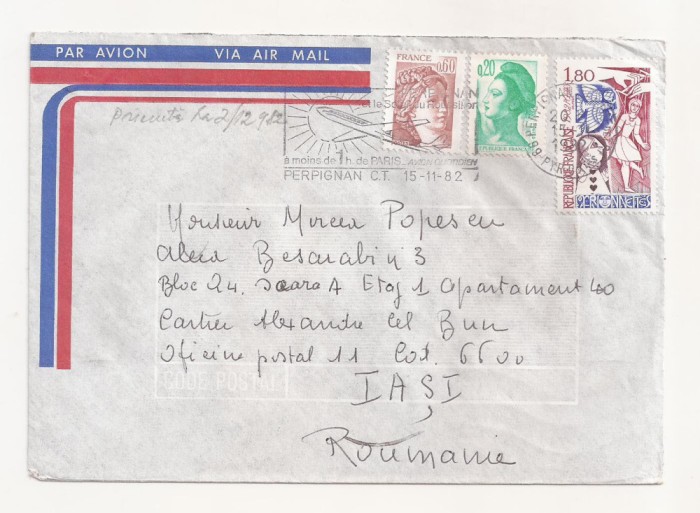 PAR AVION VIA AIR MAIL
FRANCE
0,60
0,20
REPUBLIQUE FRANCAISE
1.80
REPUBLIQUE FRANÇAISE
MARIONNETTES
à moins de 1h. de PARIS AVION QUOTIDIEN
PERPIGNAN C.T. 15-11-82
PERPIGNAN
20
15-11
19
la 2/12 982
Monsieur Mircea Popescu
Aleea Basarabi nr 3
Bloc 24. Scara A Etaj 1 Apartament 40
Cartier Alexandru Cel Bun
Oficine postal 11 Cod. 6600
CODE POSTAL
IASI
Roumanie